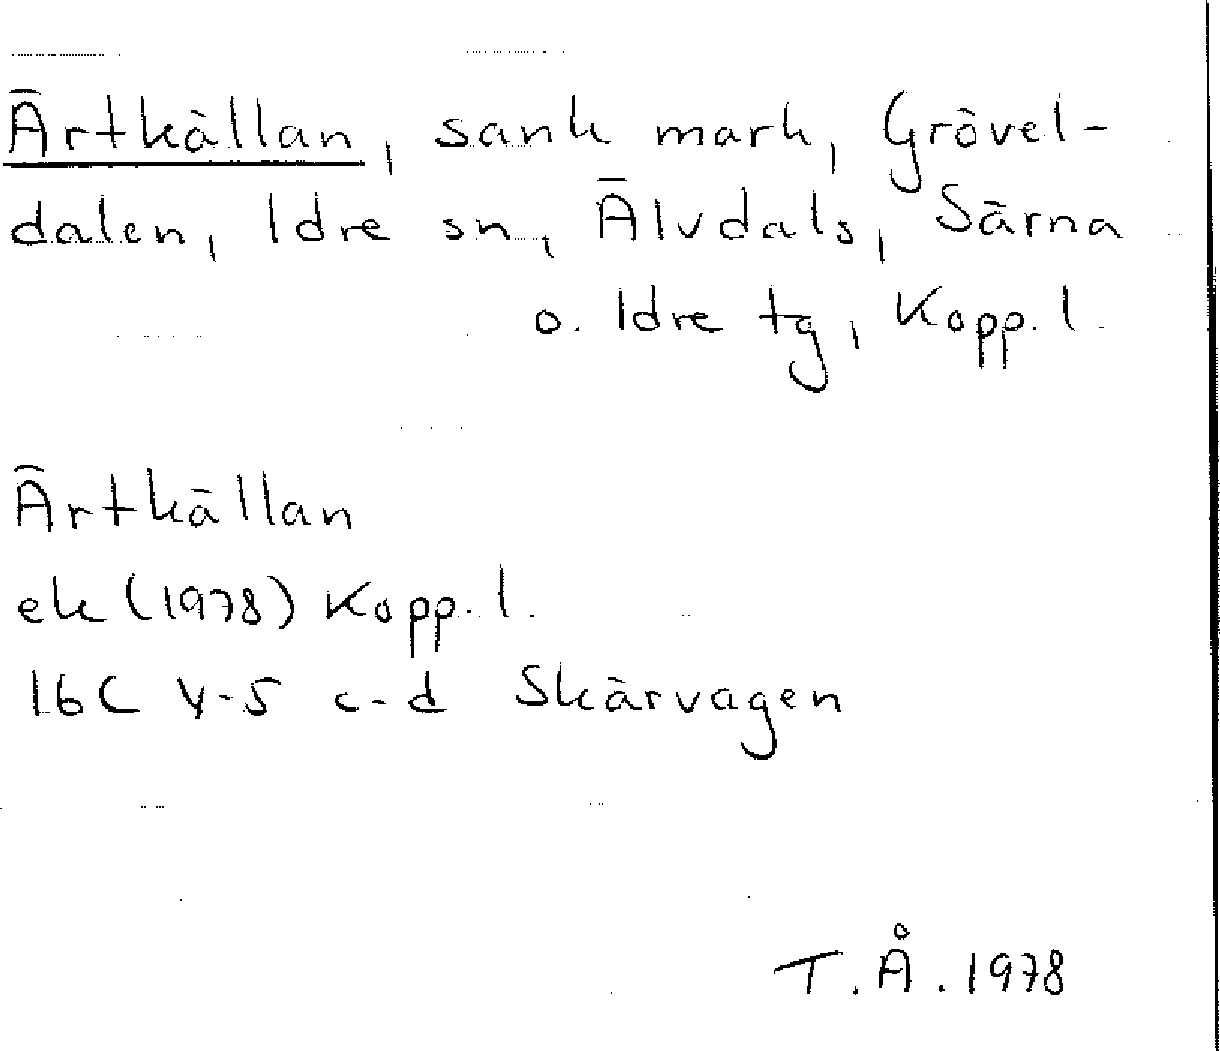 Ärtkällan, sank mark, Grövel-
dalen, Idre sn, Älvdals, Särna
o. Idre tg, Kopp. l.
Ärtkällan
ek (1978) Kopp. l.
16C 4-5 c-d Skärvagen
T.Å. 1978